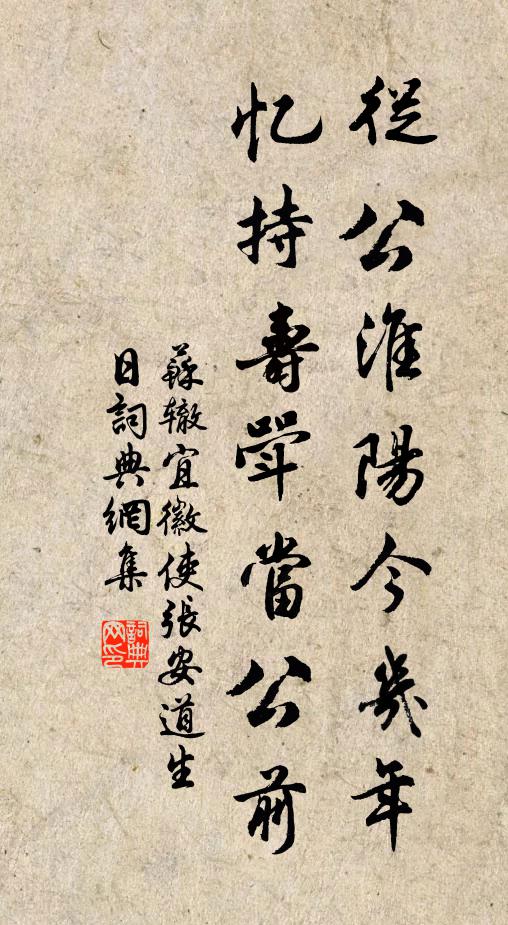 從公淮陽今幾年
忆持壽斝當公前
蘇辙宜徽使張安道生
日詞典網集
詞典网印